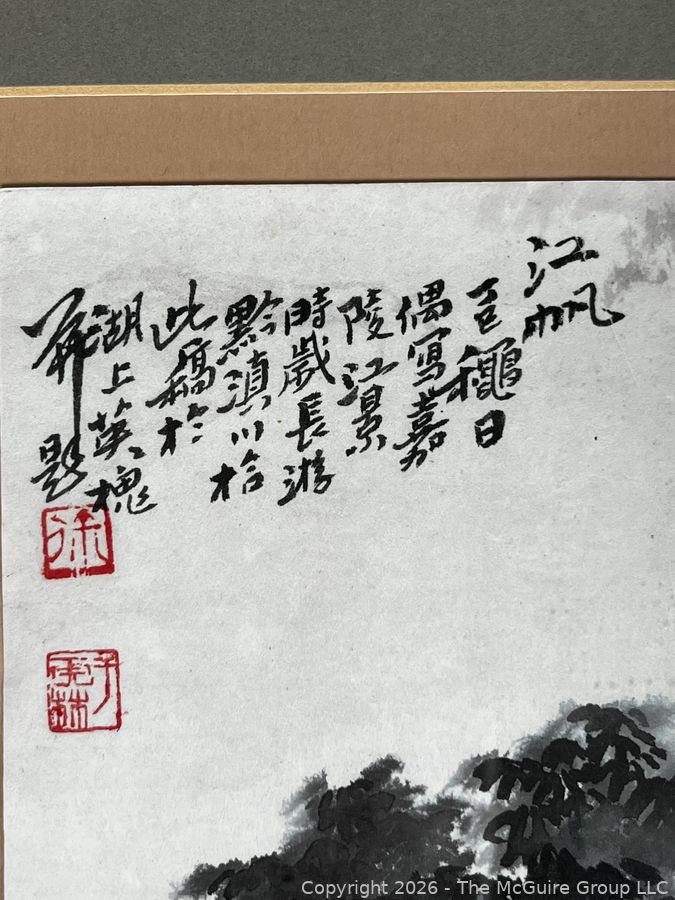 江帆
穐日
偶寫嘉
陵江景
時歲長游
黔滇川拾
此稿於
湖上英槐
題
徐
Copyright 2026 - The McGuire Group LLC